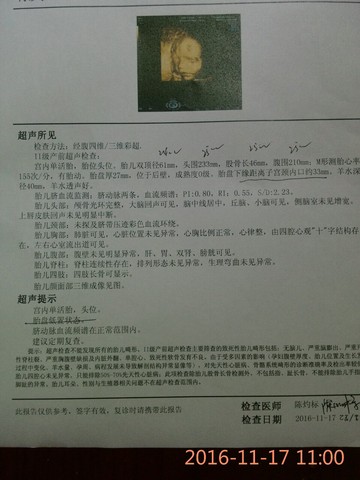 超声所见
检查方法：经腹四维/三维彩超。
II级产前超声检查：
宫内单活胎，胎位头位，胎儿双顶径61mm，头围233mm，股骨长46mm，腹围210mm；M形测胎心率
155次/分，有胎动。胎盘厚27mm，位于后壁，成熟度0级，胎盘下缘距离子宫颈内口约33mm，羊水深
径40mm，羊水透声好。
胎儿脐血流监测：脐动脉两条，血流频谱：PI:0.80，RI：0.55，S/D:2.23。
胎儿头部：颅骨光环完整，大脑回声可见，脑中线居中，丘脑、小脑可见，侧脑室未见增宽。
上唇皮肤回声未见明显中断。
胎儿颈部：未探及脐带压迹彩色血流环绕。
胎儿胸部：肺脏可见，心脏位置未见异常，心胸比例正常，心律整，由四腔心观"十"字结构存
在，左右心室流出道可见。
胎儿腹部：腹壁未见明显异常，肝、胃、双肾、膀胱可见。
胎儿脊柱：脊柱连续性存在，排列形态未见异常，生理弯曲未见异常。
胎儿四肢：四肢长骨可显示。
胎儿颜面部三维成像见图。
超声提示
宫内单活胎，头位。
胎盘低置状态。
脐动脉血流频谱在正常范围内。
建议定期复查。
此报告仅供参考，签字有效，复诊时请携带此报告
检查医师 陈灼标
检查日期 2016-11-17
2016-11-17 11:00